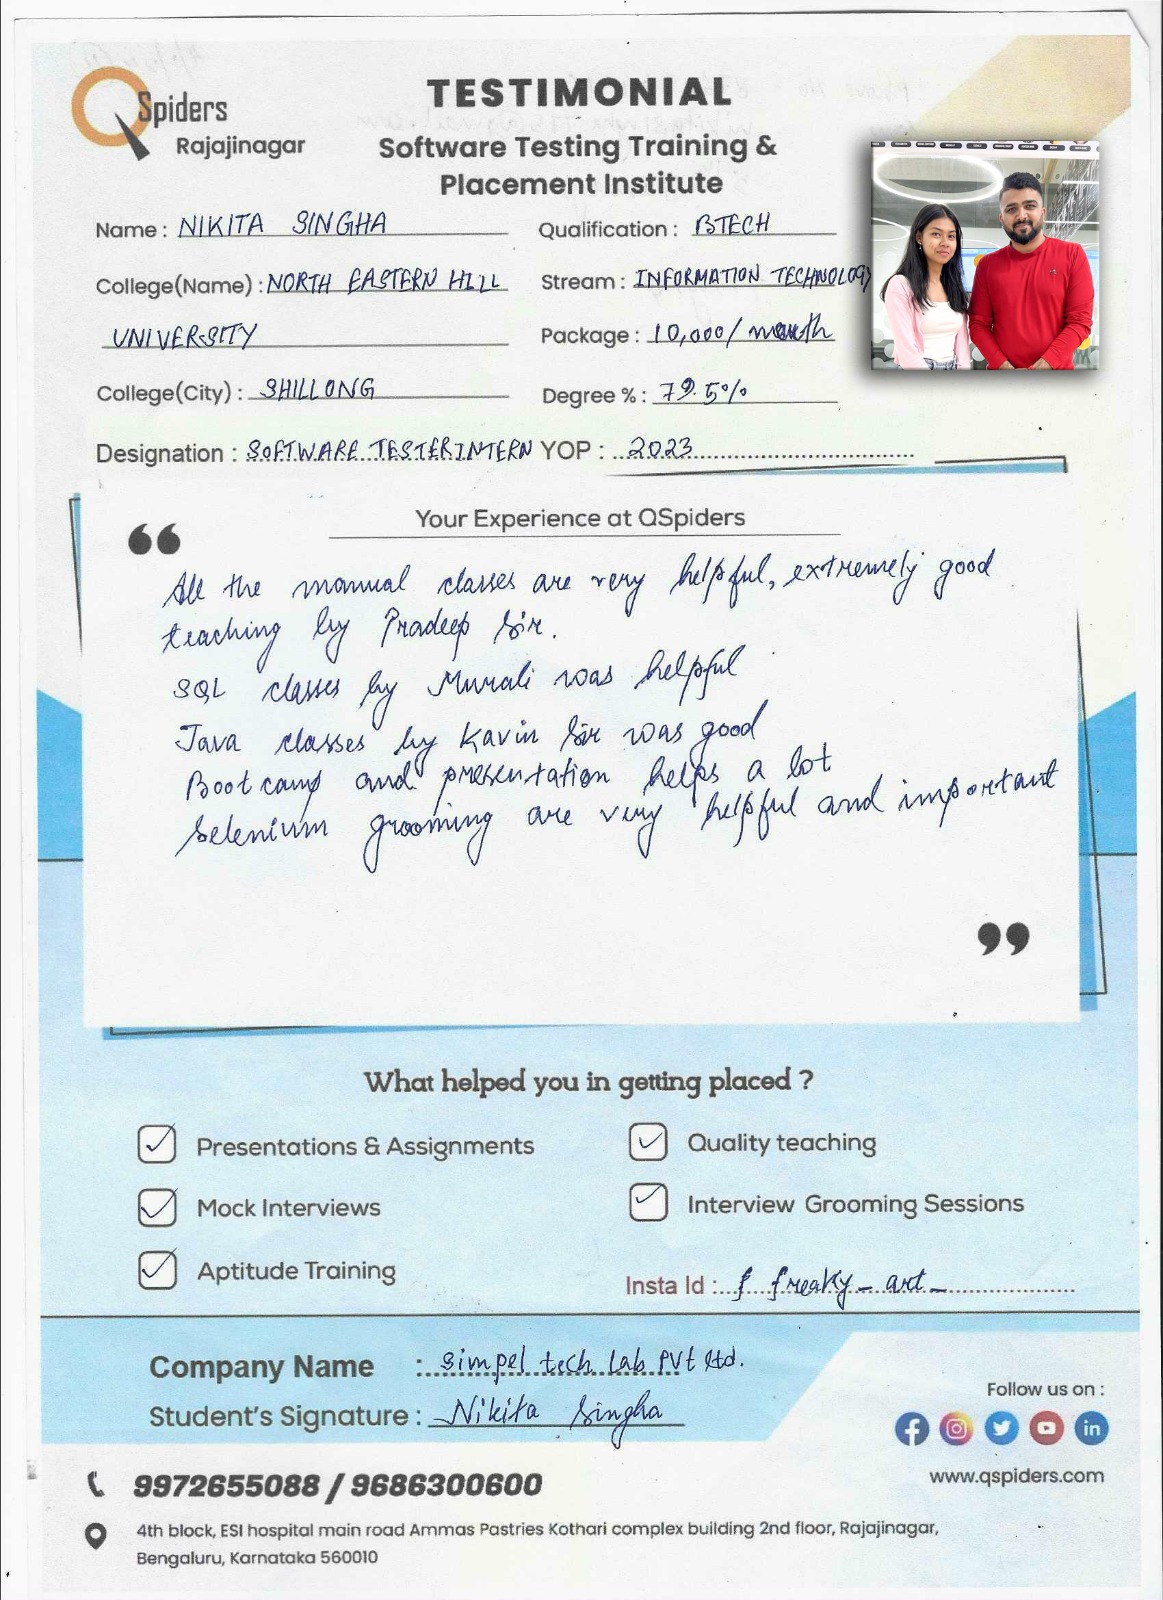 QSpiders
Rajajinagar
TESTIMONIAL
Software Testing Training &
Placement Institute
Name : NIKITA SINGHA
Qualification : BTECH
College(Name) : NORTH EASTERN HILL
Stream : INFORMATION TECHNOLOGY
UNIVERSITY
Package : 10,000/ month
College(City) : SHILLONG
Degree % : 79.5%
Designation : SOFTWARE TESTER INTERN YOP : 2023
Your Experience at QSpiders
All the manual classes are very helpful, extremely good
teaching by Pradeep Sir.
SQL classes by Murali was helpful
Java classes by Kavin Sir was good
Boot camp and presentation helps a lot
Selenium grooming are very helpful and important
What helped you in getting placed ?
Presentations & Assignments
Quality teaching
Mock Interviews
Interview Grooming Sessions
Aptitude Training
Insta Id : f freaky_art_
Company Name : Simpel tech Lab PVt Ltd.
Student's Signature : Nikita Singha
Follow us on :
www.qspiders.com
9972655088 / 9686300600
4th block, ESI hospital main road Ammas Pastries Kothari complex building 2nd floor, Rajajinagar,
Bengaluru, Karnataka 560010